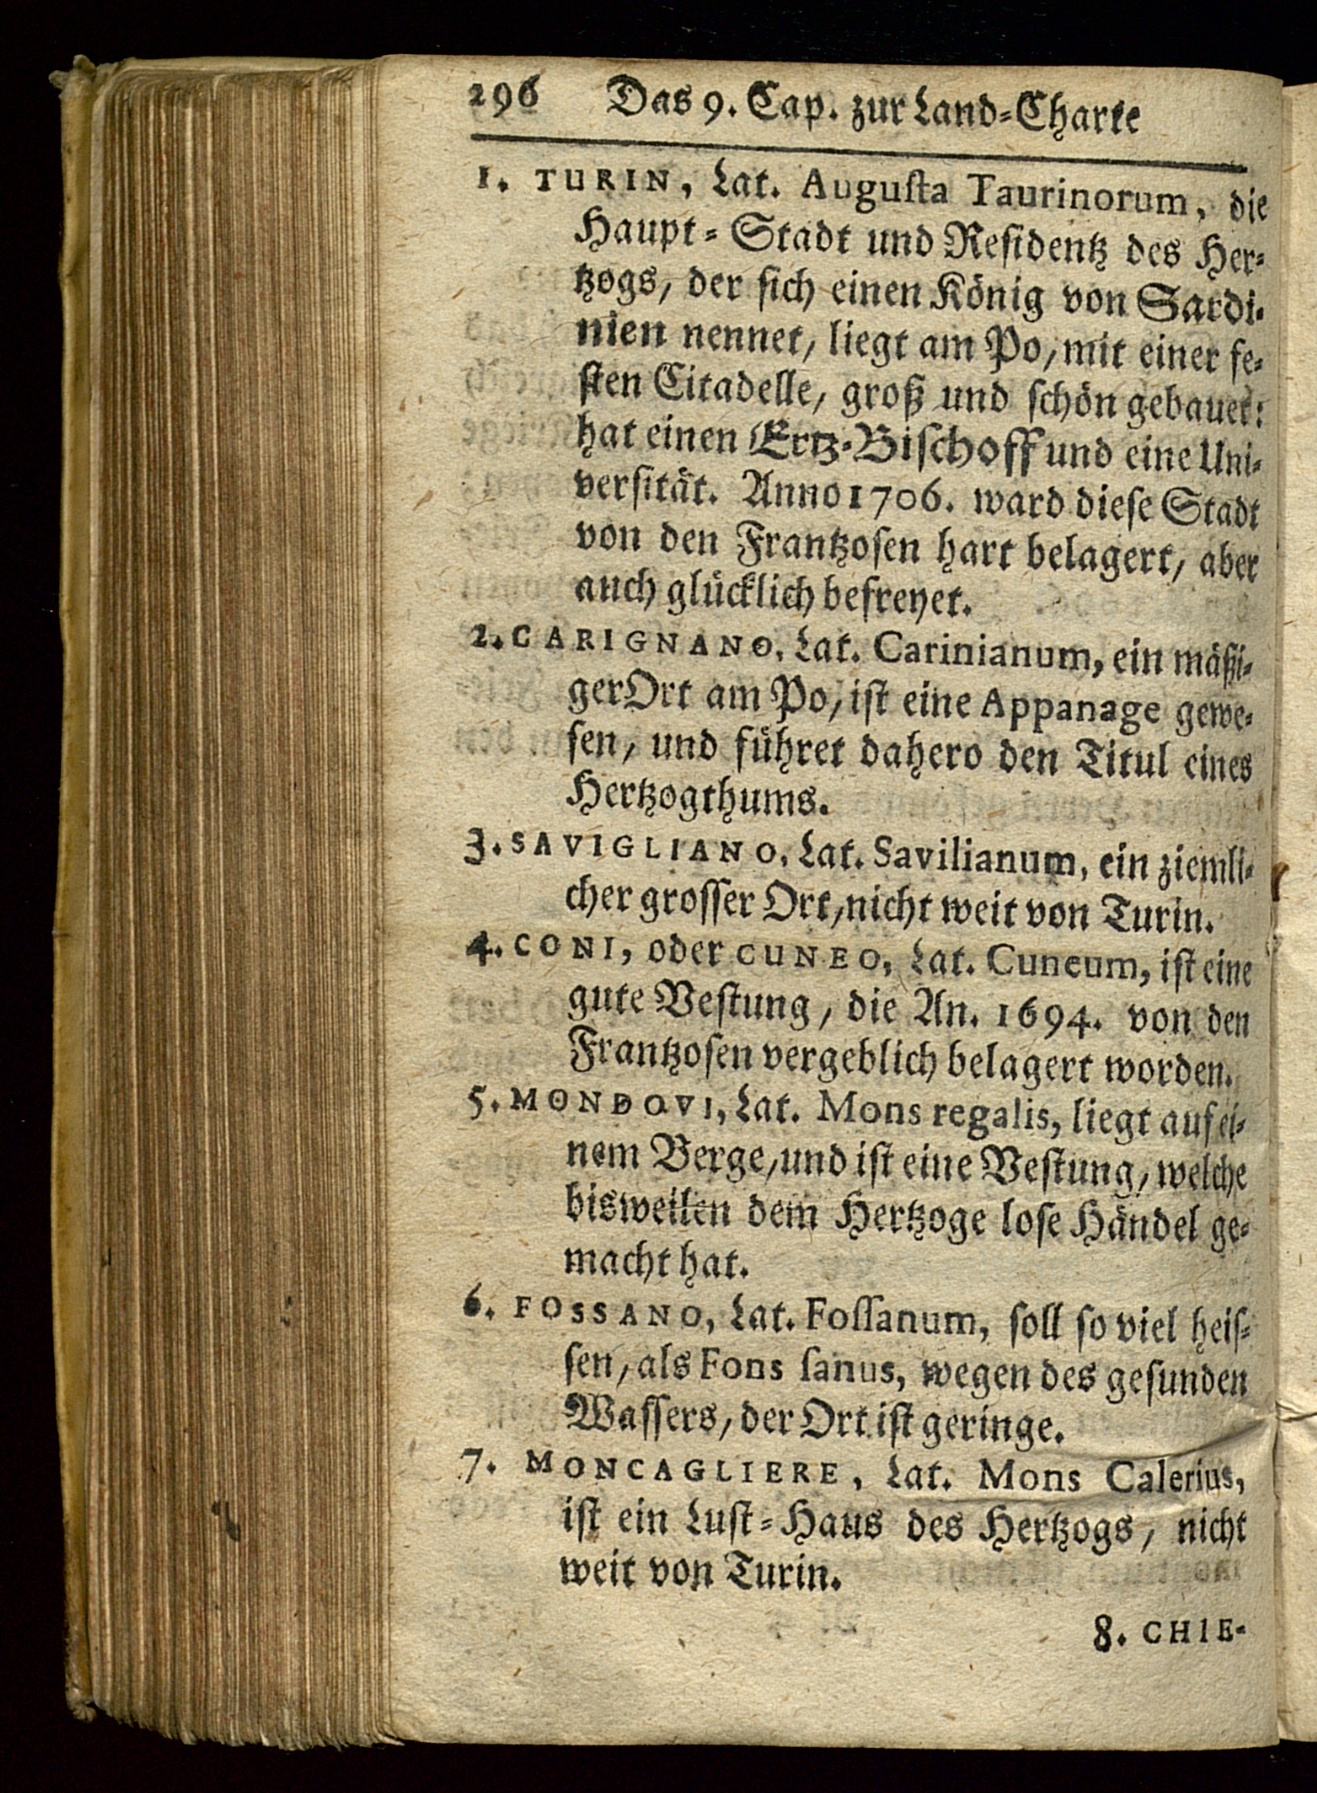 296 Das 9. Cap. zur Land-Charte
1. TURIN, Lat. Augusta Taurinorum, die
Haupt-Stadt und Residentz des Her-
tzogs, der sich einen König von Sardi-
nien nennet, liegt am Po, mit einer fe-
sten Citadelle, groß und schön gebauet:
hat einen Ertz-Bischoff und eine Uni-
versität. Anno 1706. ward diese Stadt
von den Frantzosen hart belagert, aber
auch glücklich befreyet.
2. CARIGNANO, Lat. Carinianum, ein mäßi-
ger Ort am Po, ist eine Appanage gewe-
sen, und führet dahero den Titul eines
Hertzogthums.
3. SAVIGLIANO, Lat. Savilianum, ein ziemli-
cher grosser Ort, nicht weit von Turin.
4. CONI, oder CUNEO, Lat. Cuneum, ist eine
gute Vestung, die An. 1694. von den
Frantzosen vergeblich belagert worden.
5. MONDOVI, Lat. Mons regalis, liegt auf ei-
nem Berge, und ist eine Vestung, welche
bisweilen dem Hertzoge lose Händel ge-
macht hat.
6. FOSSANO, Lat. Fossanum, soll so viel heis-
sen, als Fons sanus, wegen des gesunden
Wassers, der Ort ist geringe.
7. MONCAGLIERE, Lat. Mons Calerius,
ist ein Lust-Haus des Hertzogs, nicht
weit von Turin.
8. CHIE-